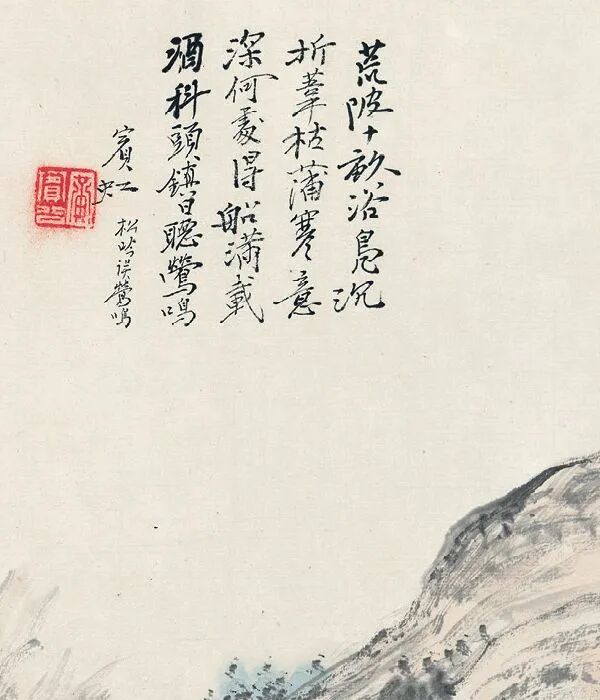 荒陂十畝浴鳧沉
折葦枯蒲寒意
深何處得船滿載
酒科頭鎮日聽鶯鳴
賓虹
松吟誤鶯鳴
黃賓虹